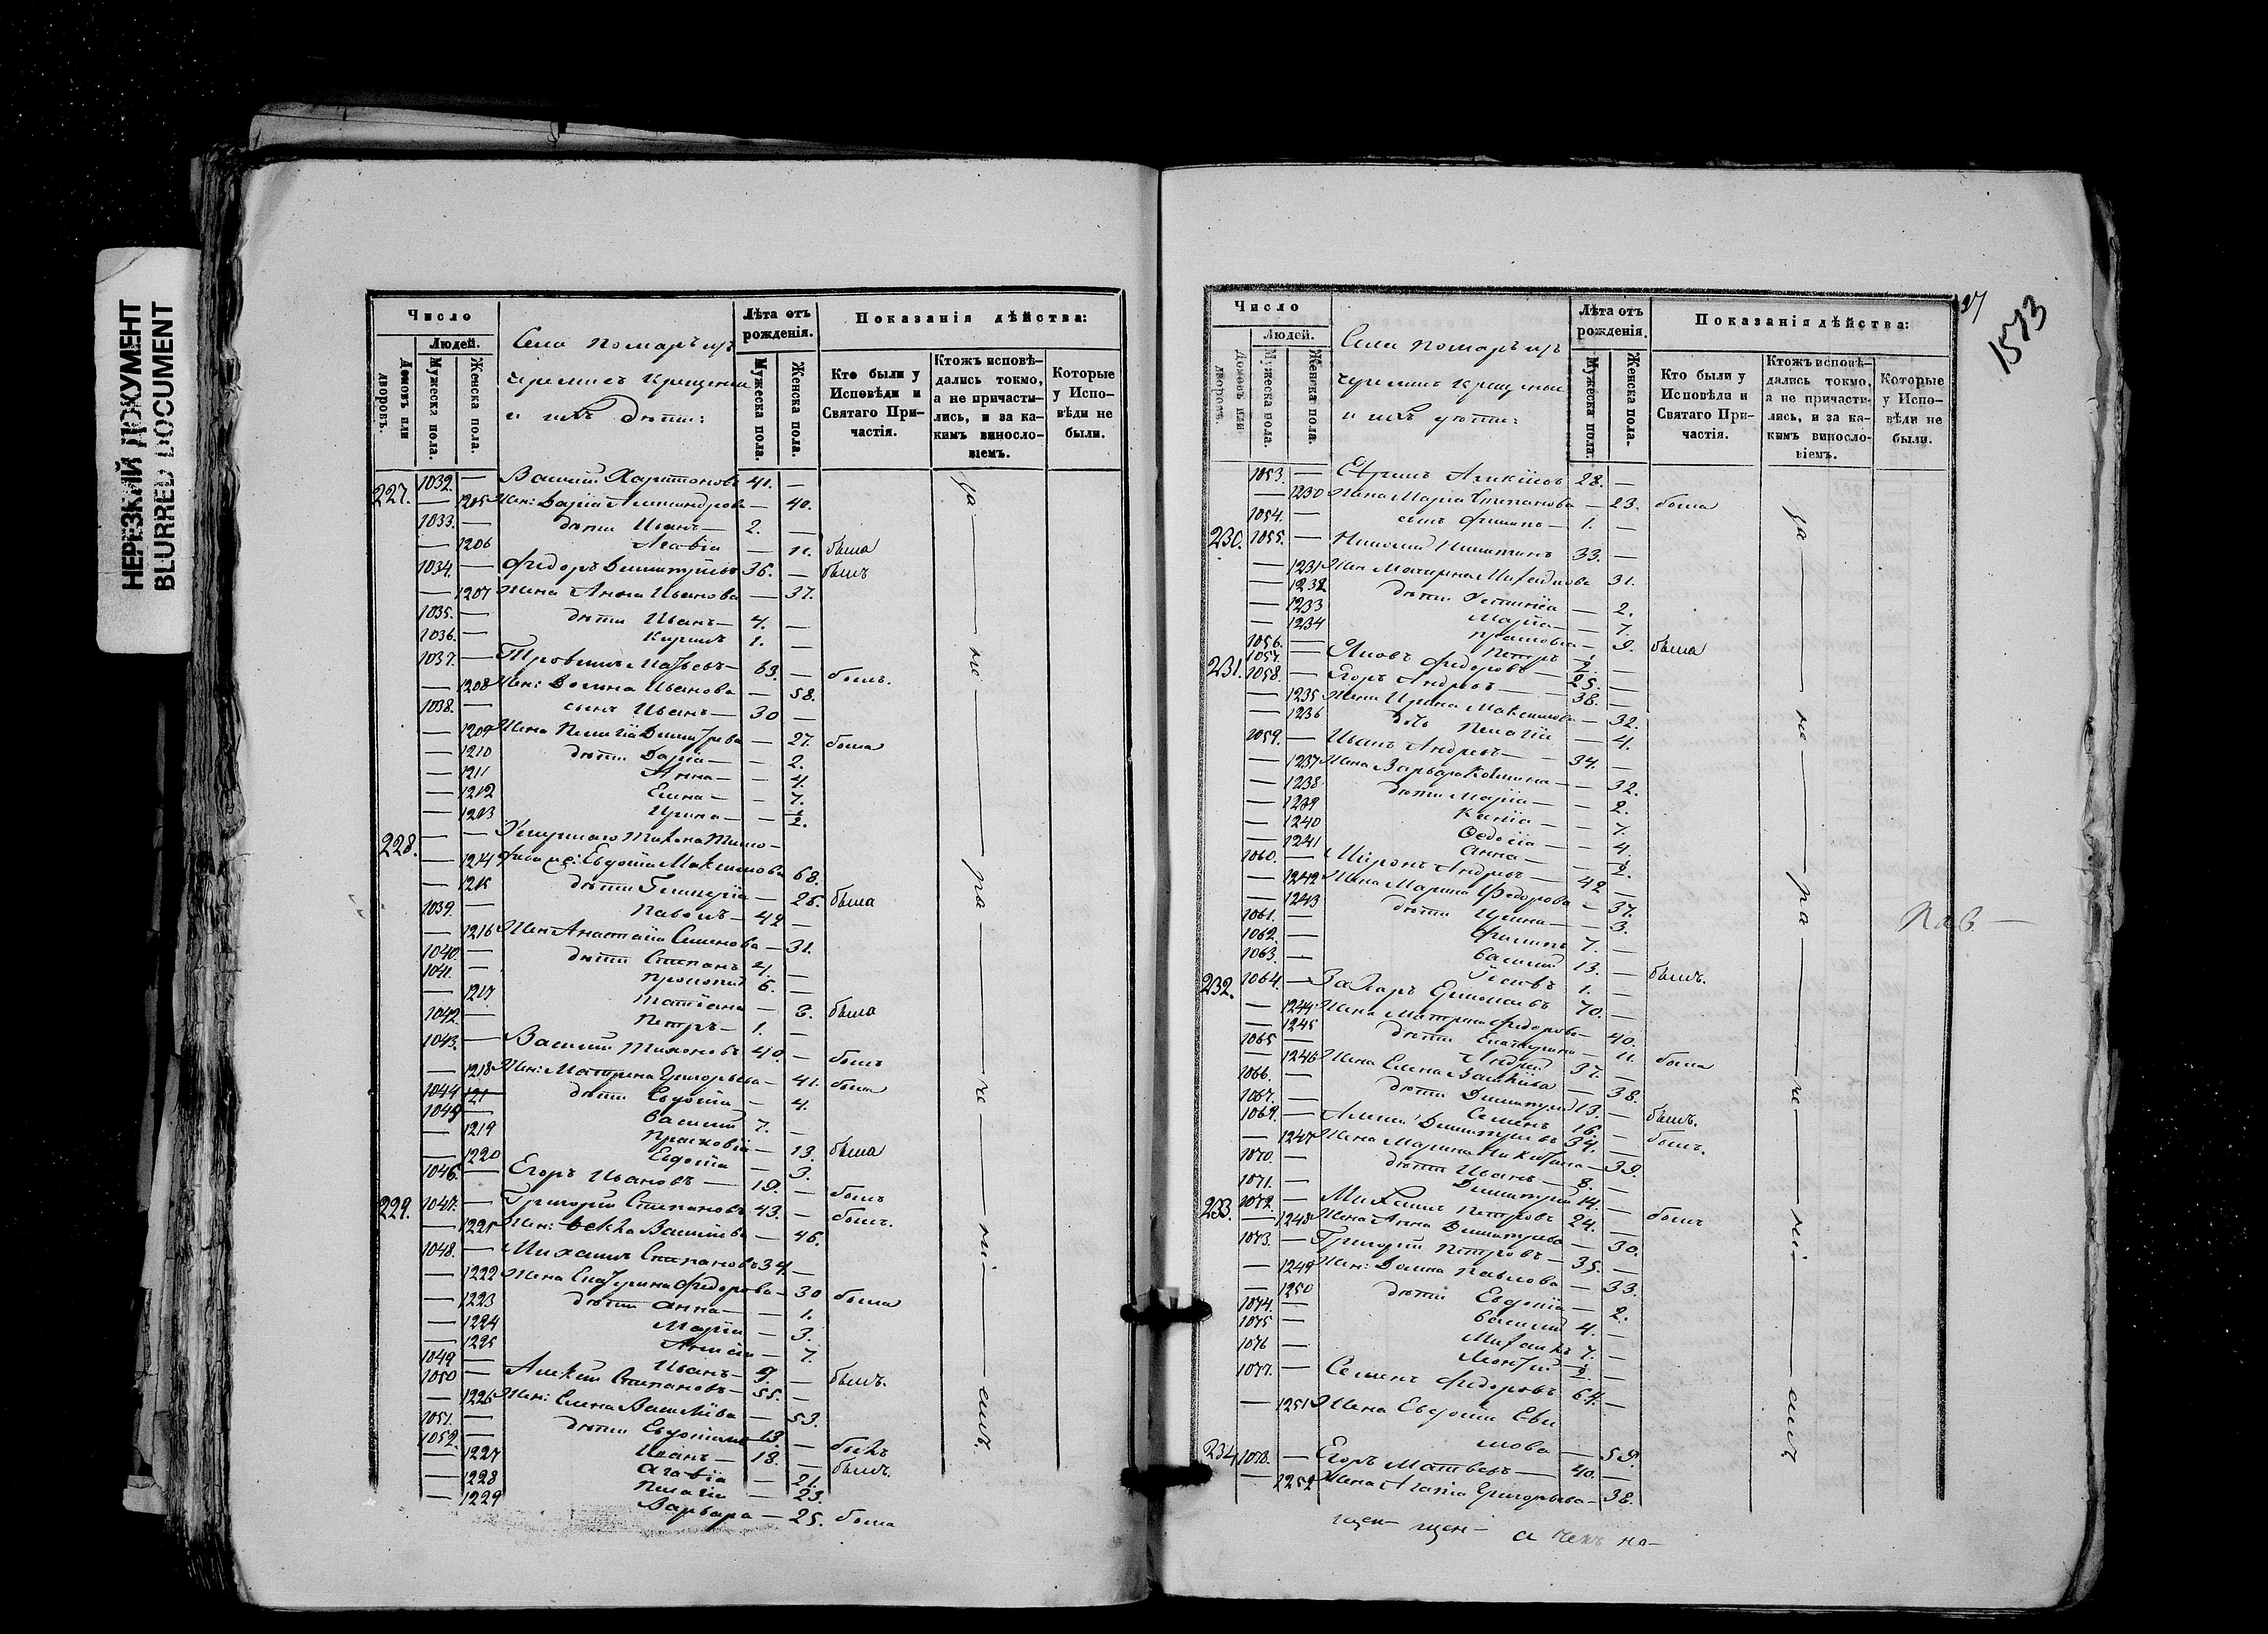 НЕРЕЗКИЙ ДОКУМЕНТ
BLURRED DOCUMENT
Число
Людей.
Домовъ или дворовъ.
Мужеска пола.
Женска пола.
Села Помаръ изъ
черемисъ крещеныи
и ихъ дѣти:
Лѣта отъ рожденія.
Мужеска пола.
Женска пола.
Показанія дѣйства:
Кто были у Исповѣди и Святаго Причастія.
Ктожъ исповѣдались токмо, а не причастились, и за какимъ винословіемъ.
Которые у Исповѣди не были.
227. 1032. — Василій Харитоновъ 41. —
— 1205 Жен: Дарія Александрова — 40.
1033. — дѣти Иванъ — 2. —
— 1206 Агафія — 11. была
1034. — Федоръ Димитріевъ 36. — былъ
— 1207 Жена Анна Иванова — 37.
1035. — дѣти Иванъ — 4. —
1036. — Кирилъ 1. —
1037. — Трофимъ Матвеевъ — 63. — былъ.
— 1208 Жен: Домна Иванова — 58.
1038. — сынъ Иванъ — 30 —
— 1209 Жена Пелагія Димитріева — 27. была
— 1210 дѣти Дарія — — 2.
— 1211 Анна — — 4.
— 1212 Елена — — 7.
— 1213 Ирина — — 1/2.
228. — — Умершаго Тихона Тимо-
— 1214 феева же: Евдокія Максимова 68.
— 1215 дѣти Гликерія — 26. была
1039. — Павелъ — 42 —
— 1216 Жен Анастасія Семенова — 31.
1040. — дѣти Степанъ 4. —
1041. — Прокопій 6. —
— 1217 Татіана — 8. была
1042. — Петръ — 1. —
1043. — Василій Тихоновъ 40. — былъ
— 1218 Жен: Матрена Григорьева — 41. была
1044 121 дѣти Евдокія — 4.
1045 — Василій 7. —
— 1219 Прасковія — 13. была
— 1220 Евдокія — 3.
1046. — Егоръ Ивановъ — 19. — былъ
229. 1047. — Григорій Степановъ 43. — былъ.
— 1221 Жен: Фекла Васильева — 46.
1048. — Михаилъ Степановъ 34. —
— 1222 Жена Екатерина Федорова — 30 была
— 1223 дѣти Анна — — 1.
— 1224 Марія — 3.
— 1225 7.
1049 — Иванъ — 9. — былъ.
1050 — Алексѣй Степановъ — 55. —
— 1226 Жен: Елена Васильева — 53.
1051. — дѣти 13. — былъ
1052. — Иванъ — 18. — былъ.
— 1227 Агафія — 21.
— 1228 Пелагія — 23.
— 1229 Варвара — 25. была
да — не — ра — че — ні — емъ.
1573
Число
Людей.
Домовъ или дворовъ.
Мужеска пола.
Женска пола.
Села Помаръ изъ
черемисъ крещеныи
и ихъ дѣти:
Лѣта отъ рожденія.
Мужеска пола.
Женска пола.
Показанія дѣйства:
Кто были у Исповѣди и Святаго Причастія.
Ктожъ исповѣдались токмо, а не причастились, и за какимъ винословіемъ.
Которые у Исповѣди не были.
1053. — Ефимъ Алексѣевъ 28. —
— 1230 Жена Марія Степанова — 23. была
1054. — сынъ Филипъ — 1. —
230. 1055. — Николай Никитинъ 33. —
— 1231 Жен Матрена Михайлова 31.
— 1232 дѣти Устинія — 2.
— 1233 Марія — — 7.
— 1234 Прасковія — 9. была
1056. — Петръ 1/2. —
1057. — Яковъ Федоровъ — 25. —
231. 1058. — Егоръ Андреевъ — 38. —
— 1235 Жена Ирина Максимова — 32.
— 1236 дочь Пелагія — 4.
1059. — Иванъ Андреевъ — 34. —
— 1237 Жена Варвара — 32.
— 1238 дѣти Марія — — 2.
— 1239 Ксенія — — 7.
— 1240 Федосія — — 4.
— 1241 Анна — — 1/2.
1060. — Миронъ Андреевъ — 42 —
— 1242 Жена Марина Федорова — 37.
— 1243 дѣти Ирина — — 3.
1061. — Филипъ 7. —
1062. — Василій 13. — былъ.
1063. — 1. —
232. 1064. — Захаръ Ермолаевъ 70. —
— 1244 Жена Матрена Федорова — 40.
— 1245 дѣти Екатерина — 11. была
1065 — Андрей 37. —
— 1246 Жена Елена Васильева — 38.
1066. — дѣти Димитрій 13. — былъ.
1067. — Семенъ 16 — былъ.
1069. — Алексѣй Димитріевъ 34. —
— 1247 Жена Марина Никитина — 39.
1070. — дѣти Иванъ — 8. —
1071. — Димитрій 14. — былъ
233. 1072. — Михаилъ Петровъ 24. —
— 1248 Жена Анна Димитріева — 30.
1073. — Григорій Петровъ — 35. —
— 1249 Жен: Домна Павлова — 33.
— 1250 дѣти Евдокія — 2.
1074. — Василій 4. —
1075 — Михаилъ 7. —
1076 — 1/2. —
1077. — Семенъ Федоровъ 64. —
— 1251 Жена Евдокія Ефи
мова — 59.
234. 1078. — Егоръ Матвеевъ — 40. —
— 1252 Жена Агафія Григорьева — 38.
да — не — ра — че — ні — емъ
Пав —